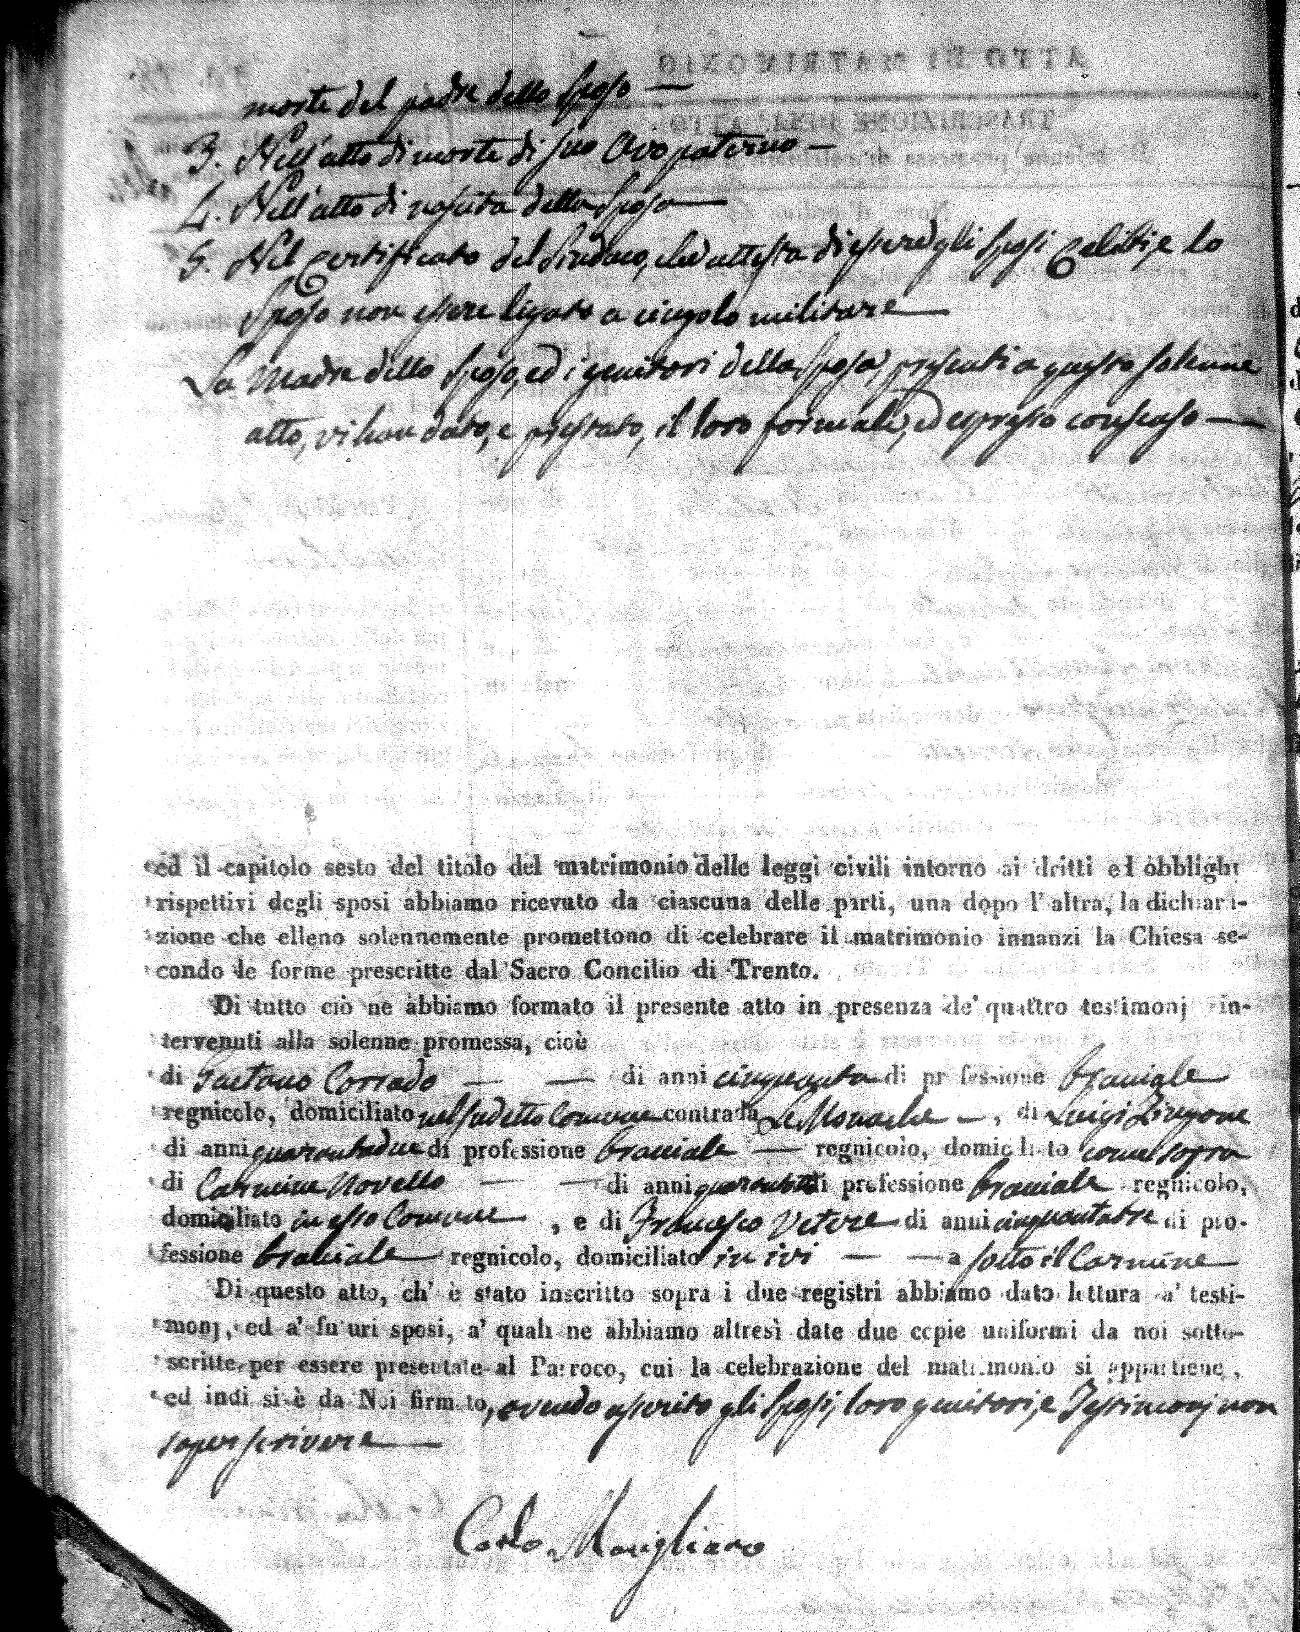 morte del padre dello Sposo —
3. Nell'atto di morte di suo Avo paterno —
4. Nell'atto di nascita della Sposa —
5. Nel Certificato del Sindaco, che attesta di essere gli Sposi Celibi, e lo
Sposo non essere ligato a cingolo militare —
La Madre dello Sposo, ed i genitori della Sposa, presenti a questo solenne
atto, vi han dato, e prestato, il loro formale, ed espresso consenso —
ed il capitolo sesto del titolo del matrimonio delle leggi civili intorno ai dritti ed obblighi
rispettivi degli sposi abbiamo ricevuto da ciascuna delle parti, una dopo l'altra, la dichiara-
zione che elleno solennemente promettono di celebrare il matrimonio innanzi la Chiesa se-
condo le forme prescritte dal Sacro Concilio di Trento.
Di tutto ciò ne abbiamo formato il presente atto in presenza de' quattro testimonj in-
tervenuti alla solenne promessa, cioè
di Gaetano Corrado — — di anni cinquanta di professione bracciale
regnicolo, domiciliato nel sudetto Comune contrada Le Monache —, di Luigi
di anni quarantadue di professione bracciale — regnicolo, domiciliato come sopra
di Carmine Novello — — di anni di professione bracciale regnicolo,
domiciliato in esso Comune, e di Francesco Vetere di anni cinquantatre di pro-
fessione bracciale regnicolo, domiciliato in ivi — — a sotto il Carmine
Di questo atto, ch' è stato inscritto sopra i due registri abbiamo dato lettura a' testi-
monj, ed a' futuri sposi, a' quali ne abbiamo altresì date due copie uniformi da noi sotto-
scritte per essere presentate al Parroco, cui la celebrazione del matrimonio si appartiene,
ed indi si è da Noi firmato, avendo asserito gli Sposi, loro genitori, e Testimonj non
saper scrivere —
Carlo Marigliano